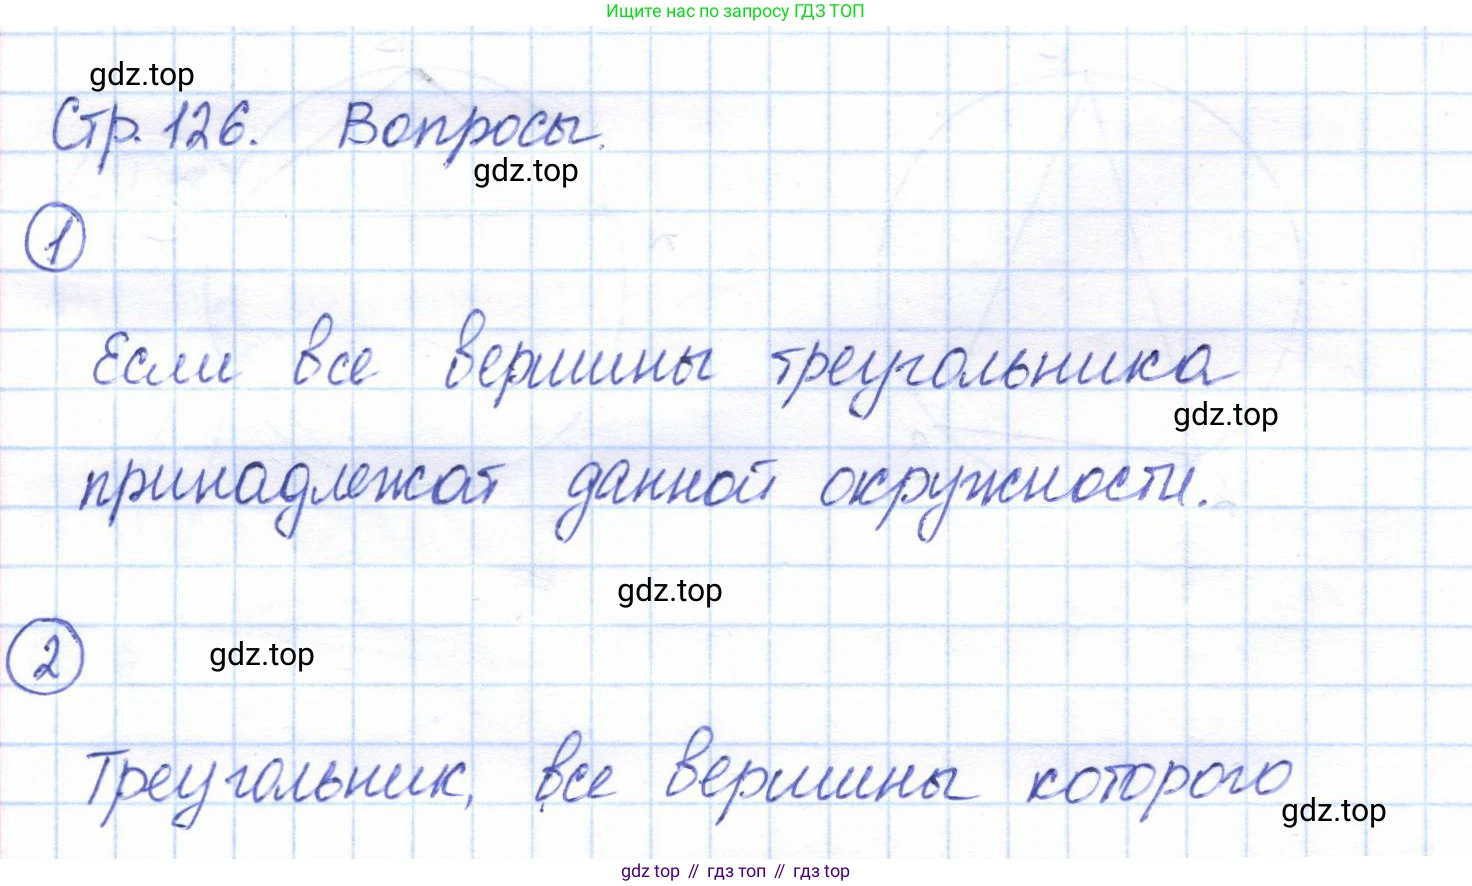 Ищите нас по запросу ГДЗ ТОП
gdz.top
Стр. 126. Вопросы.
gdz.top
1
Если все вершины треугольника
gdz.top
принадлежат данной окружности.
gdz.top
2
gdz.top
Треугольник, все вершины которого
gdz.top
gdz top // гдз топ // гдз top